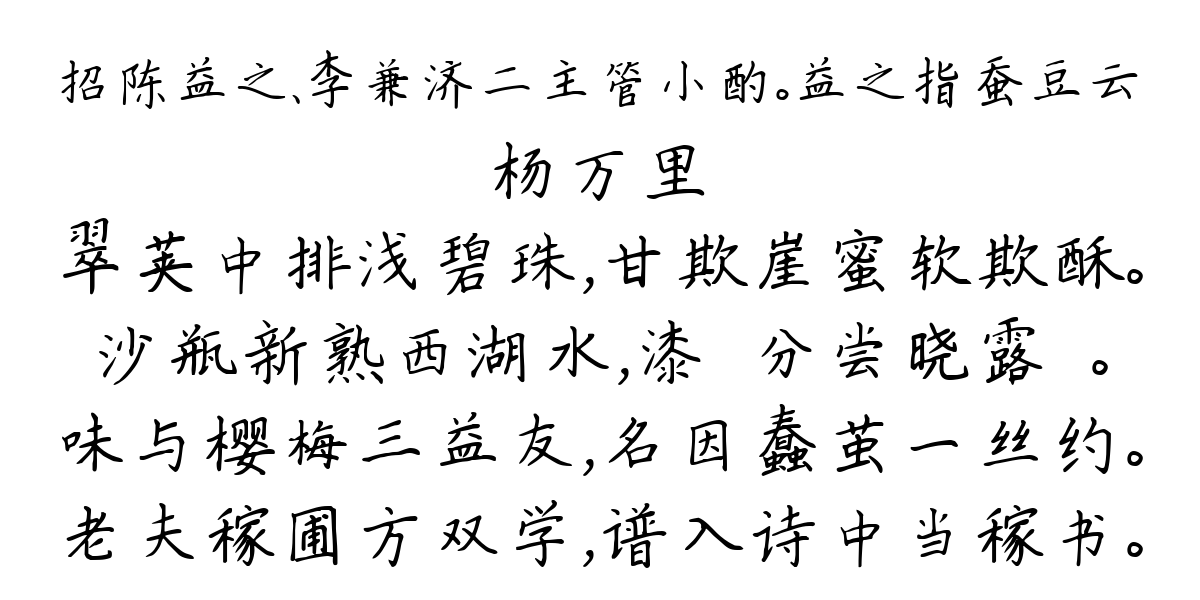 招陈益之、李兼济二主管小酌。益之指蚕豆云
杨万里
翠荚中排浅碧珠,甘欺崖蜜软欺酥。
沙瓶新熟西湖水,漆 分尝晓露 。
味与樱梅三益友,名因蠢茧一丝约。
老夫稼圃方双学,谱入诗中当稼书。